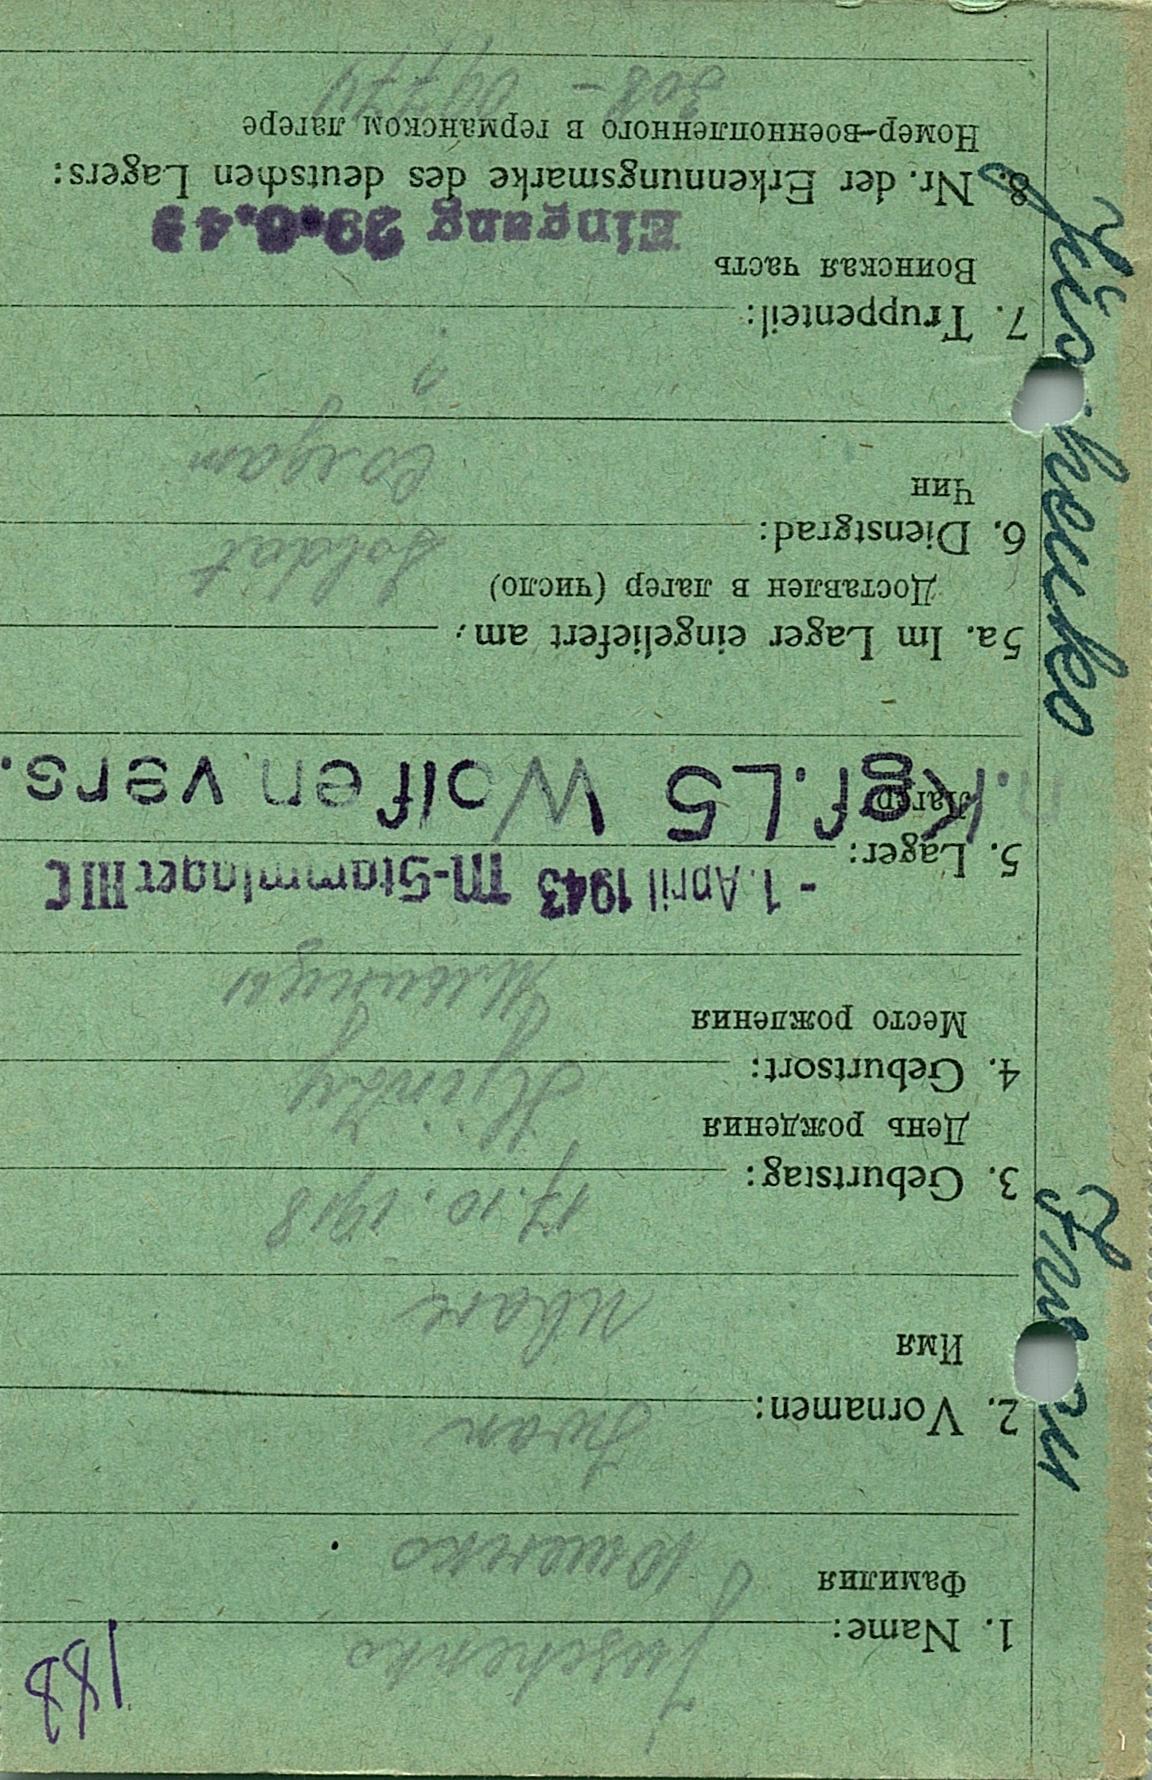 188
1. Name: Juschenko
Фамилия Ющенко
2. Vornamen: Iwan
Имя Иван
3. Geburtstag: 17.10.1918
День рождения
4. Geburtsort:
Место рождения
- 1. April 1943 M-Stammlager III C
5. Lager:
Лагерь
n. Kgf. L5 Wolfen vers.
5a. Im Lager eingeliefert am:
Доставлен в лагер (число)
6. Dienstgrad: Soldat
Чин Солдат
7. Truppenteil: ?
Воинская часть
Eingang 29.6.43
8. Nr. der Erkennungsmarke des deutschen Lagers:
Номер-военнопленного в германском лагере
308 -